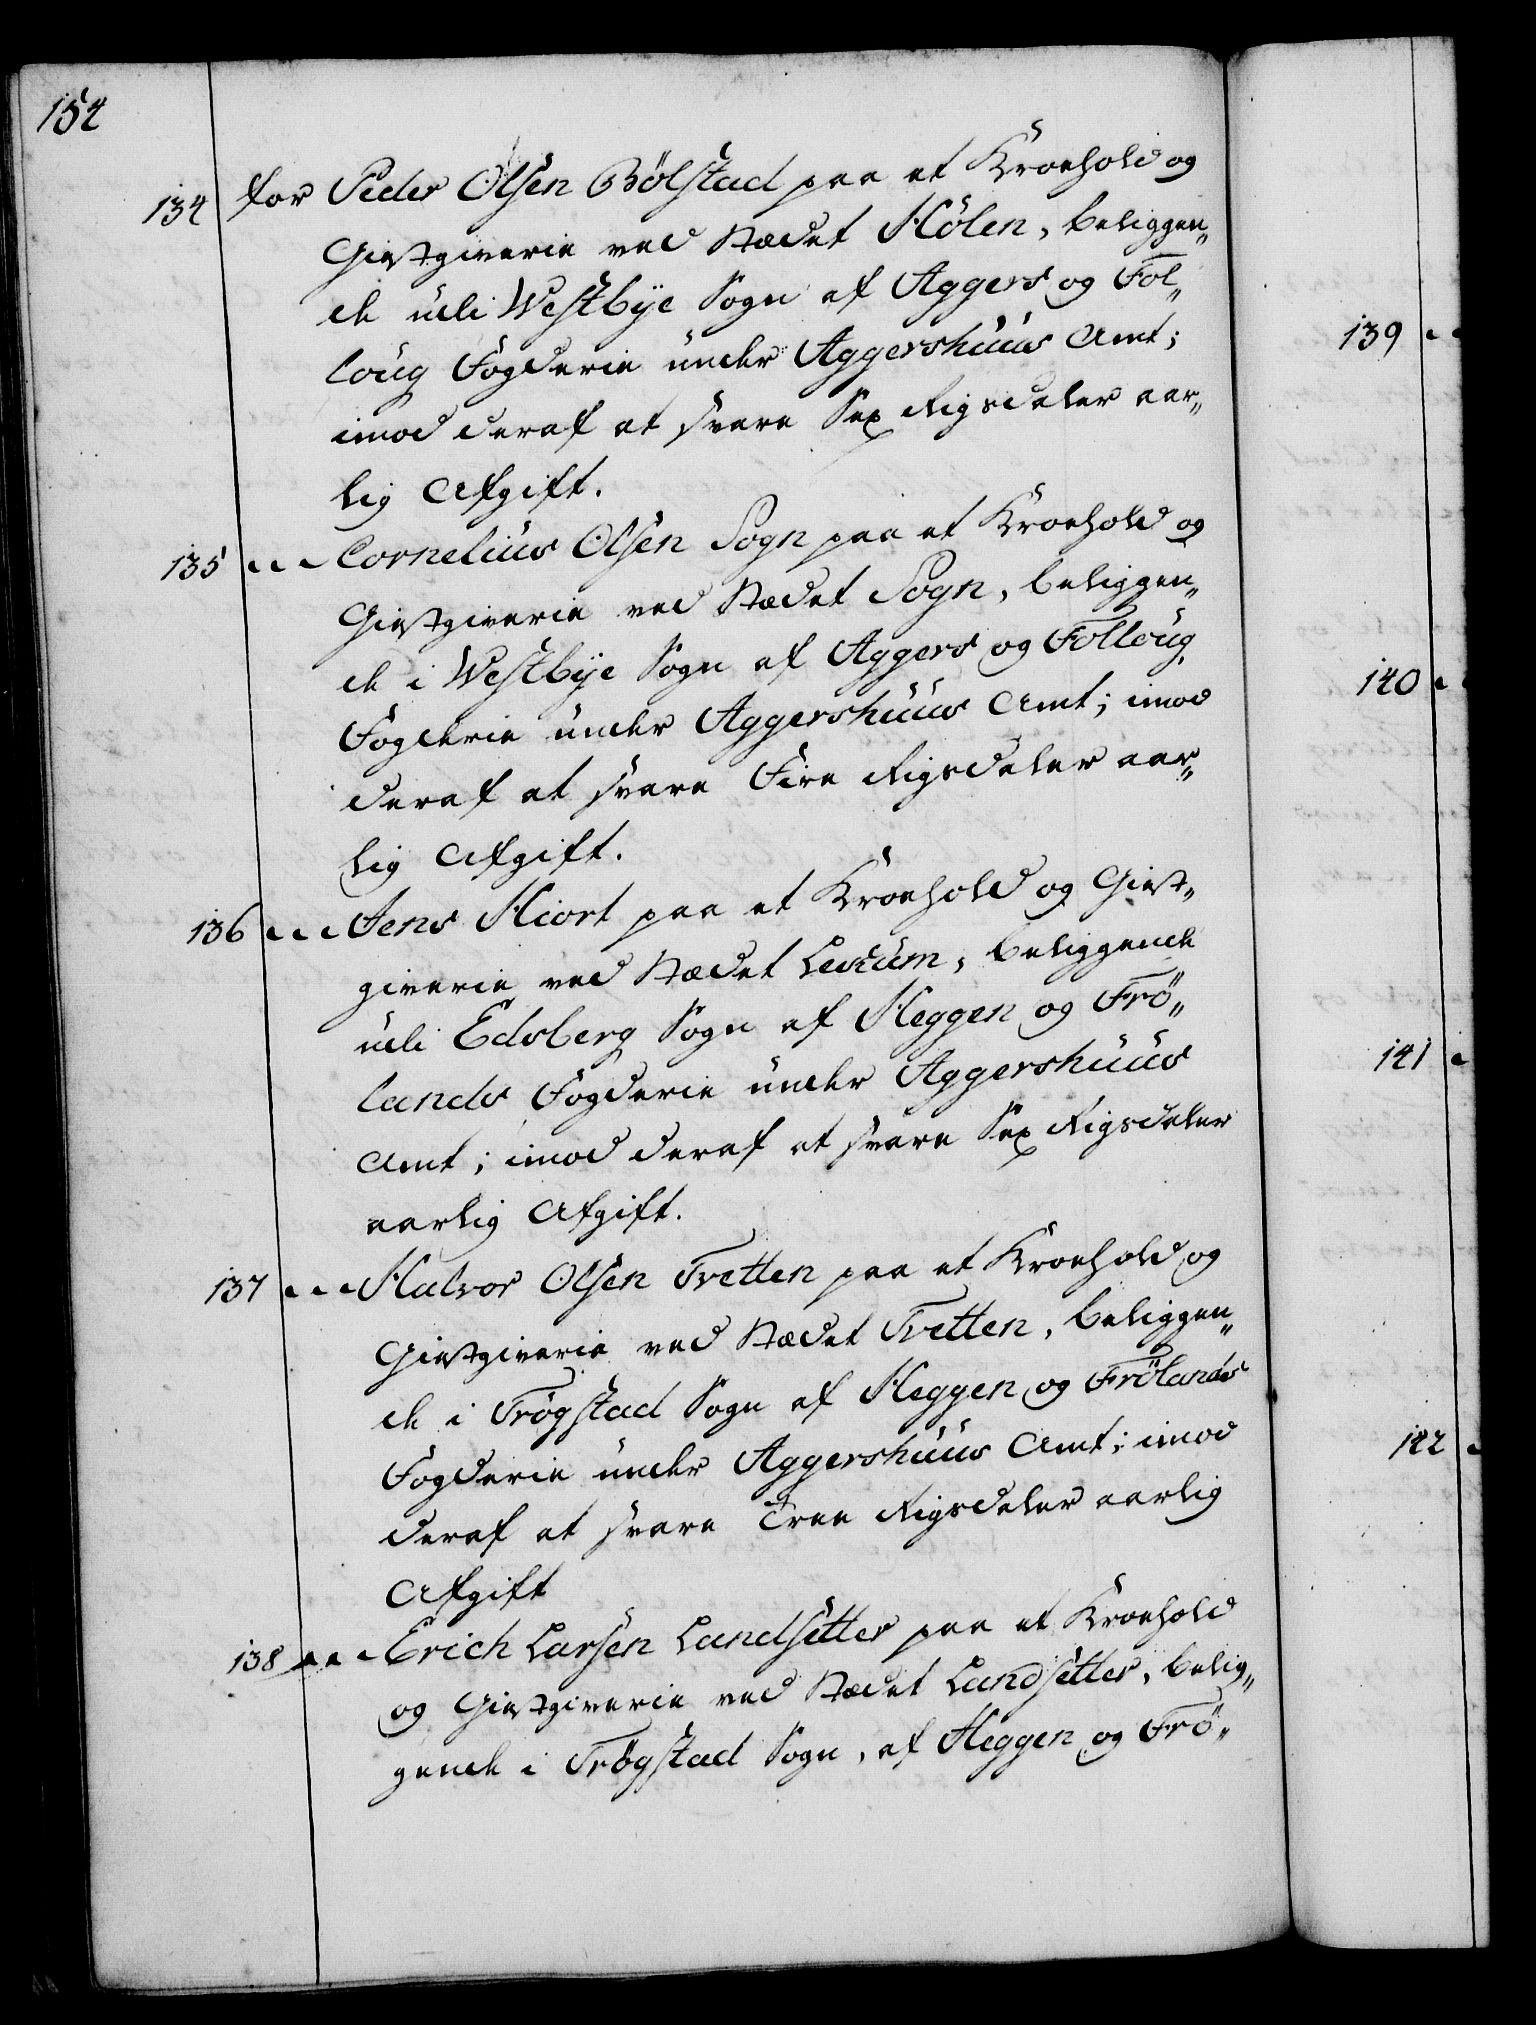 154
134 for Peder Olsen Bølstad paa et Kroehold og
Giestgiverie ved Stædet Hølen, beliggen„
de udi Westbÿe Sogn af Aggers og Fol„
loug Fogderie under Aggershuus Amt;
imod deraf at svare Sex Rigsdaler aar„
lig Afgift.
135 - - - Cornelius Olsen Sogn paa et Kroehold og
Giestgiverie ved Stædet Sogn, beliggen„
de i Westbÿe Sogn af Aggers og Folloug
Fogderie under Aggershuus Amt; imod
deraf at svare Fire Rigsdaler aar„
lig Afgift.
136 - - - Jens Hiort paa et Kroehold og Giest„
giverie ved Stædet Lecum, beliggende
udi Edsberg Sogn af Heggen og Frö„
lands Fogderie under Aggershuus
Amt; imod deraf at svare Sex Rigsdaler
aarlig Afgift.
137 - - - Halvor Olsen Tvetten paa et Kroehold og
Giestgiverie ved Stædet Tvetten, beliggen„
de i Trøgstad Sogn af Heggen og Frölands
Fogderie under Aggershuus Amt; imod
deraf at svare Tree Rigsdaler aarlig
Afgift
138 - - - Erich Larsen Landsetter paa et Kroehold
og Giestgiverie ved Stædet Landsetter, belig„
gende i Trøgstad Sogn, af Heggen og Frö„
139 - -
140 - -
141 -
142 -